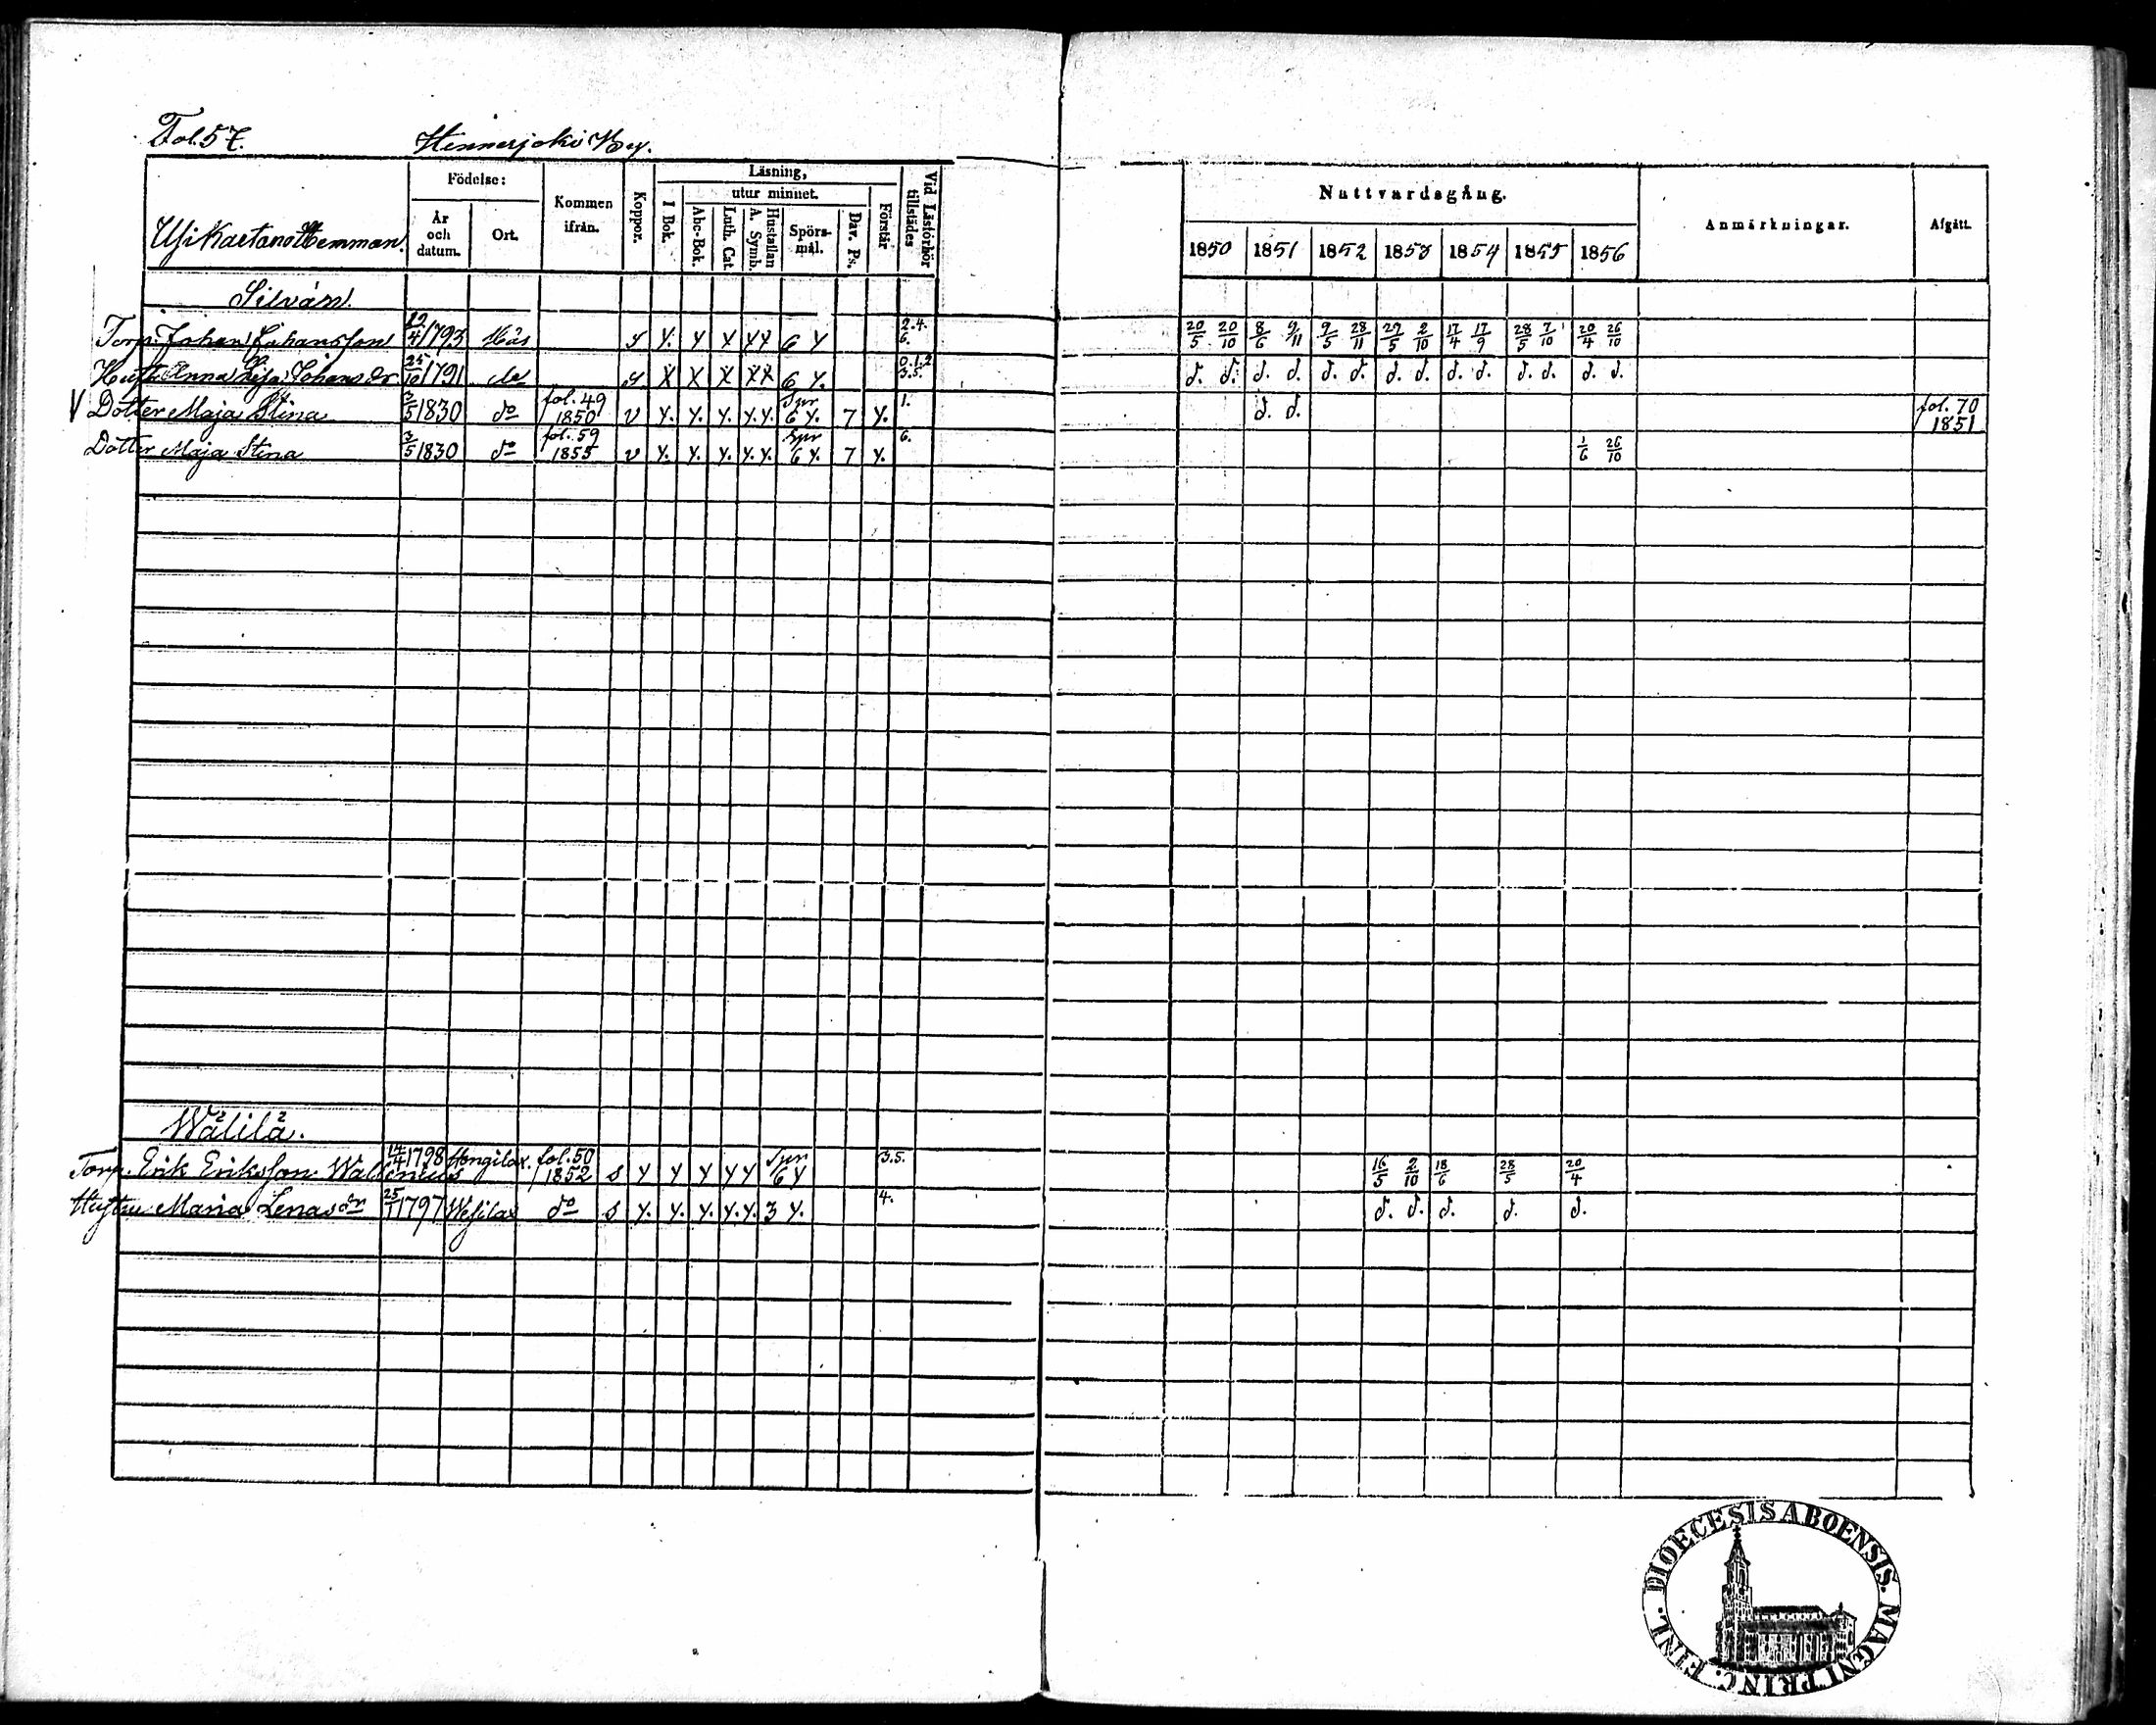 Fol. 57. Hinnerjoki By.
Födelse: Kommen ifrån. Koppor. Läsning, Vid Läsförhör tillstädes
utur minnet.
Usikartano Hemman. År och datum. Ort. I Bok. Abc-Bok. Luth. Cat. Hustaflan A. Symb. Spörs-mål. Dav. Ps. Förstår
Nattvardsgång. Anmärkningar. Afgått.
1850 1851 1852 1853 1854 1855 1856
Silvan.
Torp. Johan Johansson 12/4 1793 s y. y x x y 6 y 2.4. 6. 20/5 20/10 8/6 9/11 9/5 28/11 29/5 2/10 17/4 17/9 28/5 7/10 20/4 26/10
Hust. Anna Lisa Johans dr 25/10 1791 do s x x x x x 6 y. 0.1.2 3.5. d. d. d. d. d. d. d. d. d. d. d. d. d. d.
V Dotter Maja Stina 3/5 1830 do fol. 49 1850 v y. y. y. y. y. Spr 6 y. 7 y. 1. d. d. fol. 70 1851
Dotter Maja Stina 3/5 1830 do fol. 59 1855 v y. y. y. y. y. Spr 6 y. 7 y. 6. 1/6 26/10
Wälilä.
Torp. Erik Eriksson Wallenius 14/4 1798 Hongilax. fol. 50 1852 s y y y y y Spr 6 y 3.5. 16/5 2/10 18/6 28/5 20/4
Hustru Maria Lenas dr 25/1 1797 Wesilax do s y. y. y. y. y. 3 y. 4. d. d. d. d. d.
DIOECESIS ABOENSIS. MAGNI PRINC. FINL.